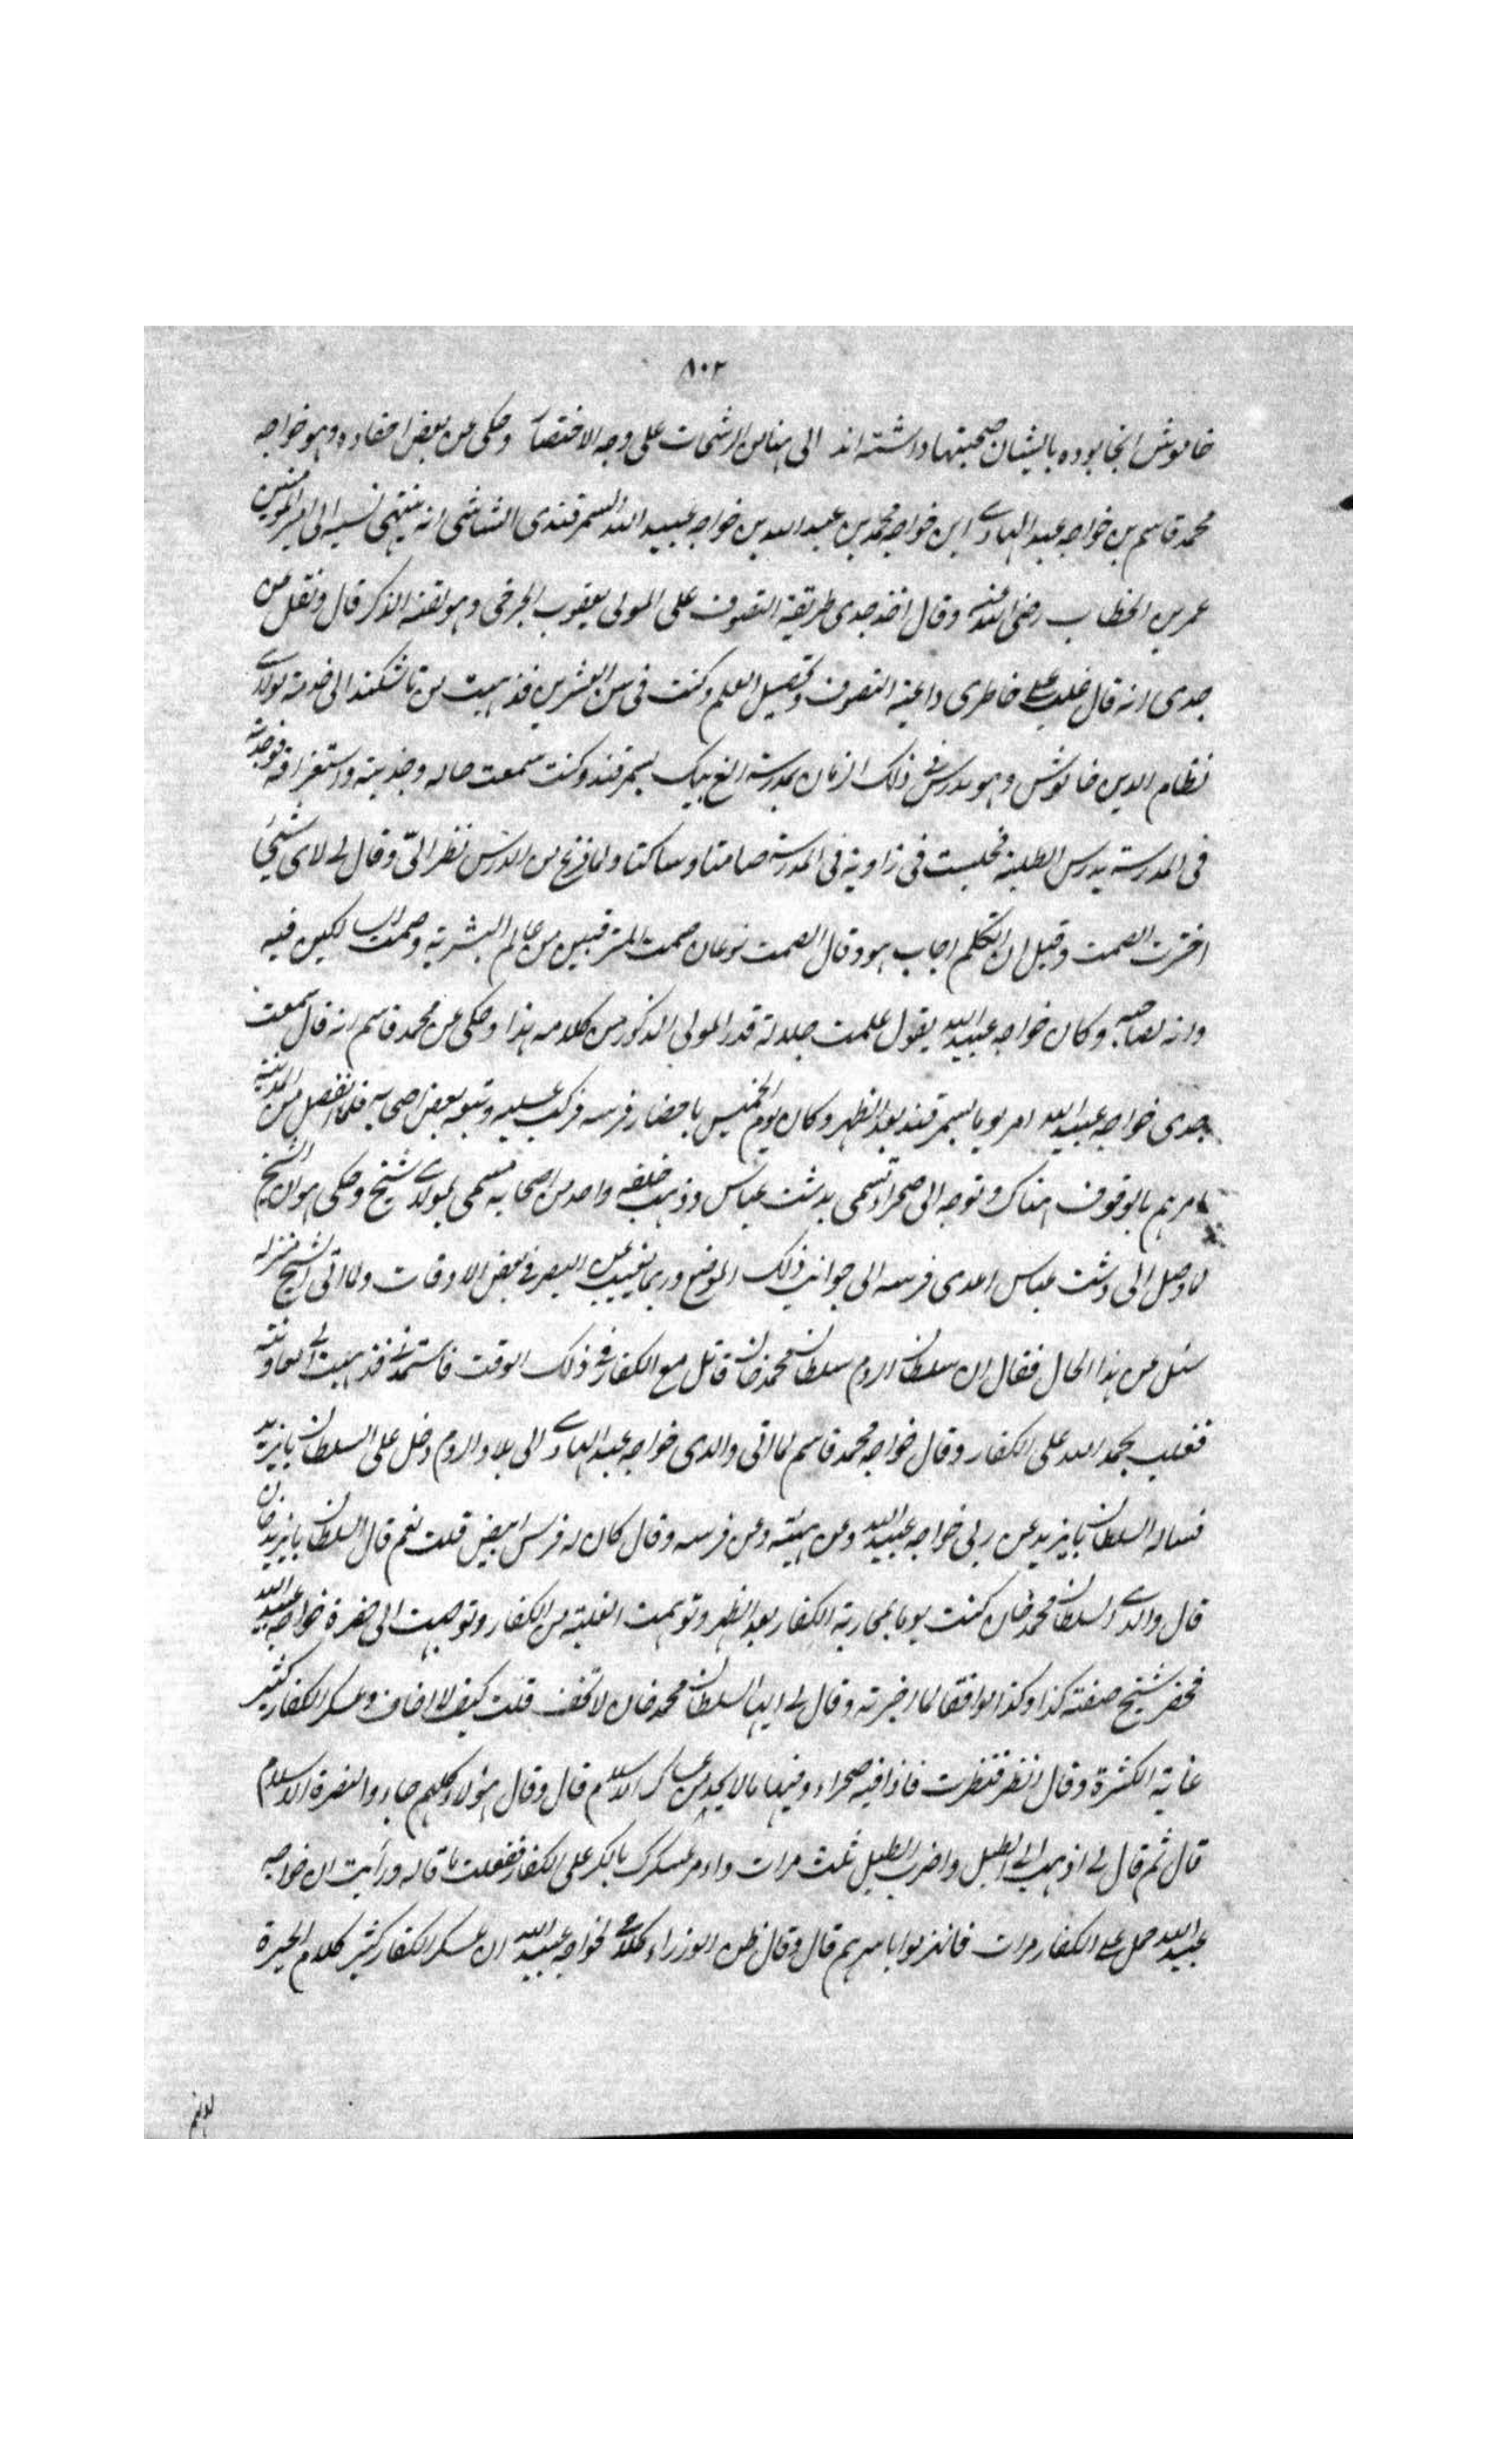 ٨٠٢
خاموش آنجا بوده بایشان صحبتها داشته اند الى هنا من الرشحات على وجه الاختصار وحكى عن بعض احفاده وهو خواجه
محمد قاسم بن خواجه عبد الهادى ابن خواجه محمد بن عبد الله بن خواجه عبيد الله السمرقندى الشاشى انه ينتهى نسبه الى امير المؤمنين
عمر بن الخطاب رضى الله عنه وقال اخذ جدى طريقة التصوف على المولى يعقوب الجرخى وهو لقنه الذكر قال ونقل عن
جدى انه قال غلب على خاطرى داعية التصوف وتحصيل العلم وكنت فى سن العشرين فذهبت من تاشكند الى خدمة مولاى
نظام الدين خاموش وهو يدرس فى ذلك الزمان بمدرسة الغ بيك بسمرقند وكنت سمعت حاله وجذبته واستغراقه فوجدته
فى المدرسة يدرس الطلبة فجلست فى زاوية فى المدرسة صامتا وساكتا ولما فرغ من الدرس نظر الىّ وقال لى لاى شىء
اخترت الصمت وقبل ان اتكلم اجاب هو وقال الصمت نوعان صمت المترقين من عالم البشرية وصمت الساكنين فيه
وانه لصاحبه وكان خواجه عبيد الله يقول علمت جلالة قدر المولى المذكور من كلامه هذا وحكى عن محمد قاسم انه قال سمعت
جدى خواجه عبيد الله امر يوما بسمرقند بعد الظهر وكان يوم الخميس باحضار فرسه فركب عليه وتبعه بعض اصحابه فلما انفصل من المدينة
امرهم بالوقوف هناك وتوجه الى صحراء تسمى بدشت عباس وذهب خلفه واحد من اصحابه مسمى بمولاى شيخ وحكى هو ان الشيخ
لما وصل الى دشت عباس اعدى فرسه الى جوانب ذلك الموضع وربما تغيب عن البصر فى بعض الاوقات ولما اتى الشيخ منزله
سئل عن هذا الحال فقال ان سلطان الروم سلطان محمد خان قاتل مع الكفار فى ذلك الوقت فاستمدنى فذهبت الى معاونته
فغلب بحمد الله على الكفار وقال خواجه محمد قاسم لما اتى والدى خواجه عبد الهادى الى بلاد الروم دخل على السلطان بايزيد
فساله السلطان بايزيد عن ربى خواجه عبيد الله وعن هيئته وعن فرسه وقال كان له فرس ابيض قلت نعم قال السلطان بايزيد خان
قال والدى السلطان محمد خان كنت يوما بمحاربة الكفار بعد الظهر وتوهمت الغلبة من الكفار وتوجهت الى حضرة خواجه عبيد الله
فحضر شيخ صفته كذا وكذا موافقا لما اخبرته وقال لى ايها السلطان محمد خان لا تخف قلت كيف لا اخاف وعسكر الكفار كثير
غاية الكثرة وقال انظر فنظرت فاذا فيه صحراء وفيها ما لا يحد من عساكر الاسلام قال وقال هؤلاء كلهم جاءوا لنصرة الاسلام
قال ثم قال لى اذهب الى الطبل واضرب الطبل ثلث مرات وامر عسكرك بالكر على الكفار ففعلت ما قاله ورأيت ان خواجه
عبيد الله حمل على الكفار مرات فانهزموا باسرهم قال وقال ظن الوزراء كلامى لخواجه عبيد الله ان عسكر الكفار كثير كلام الحيرة